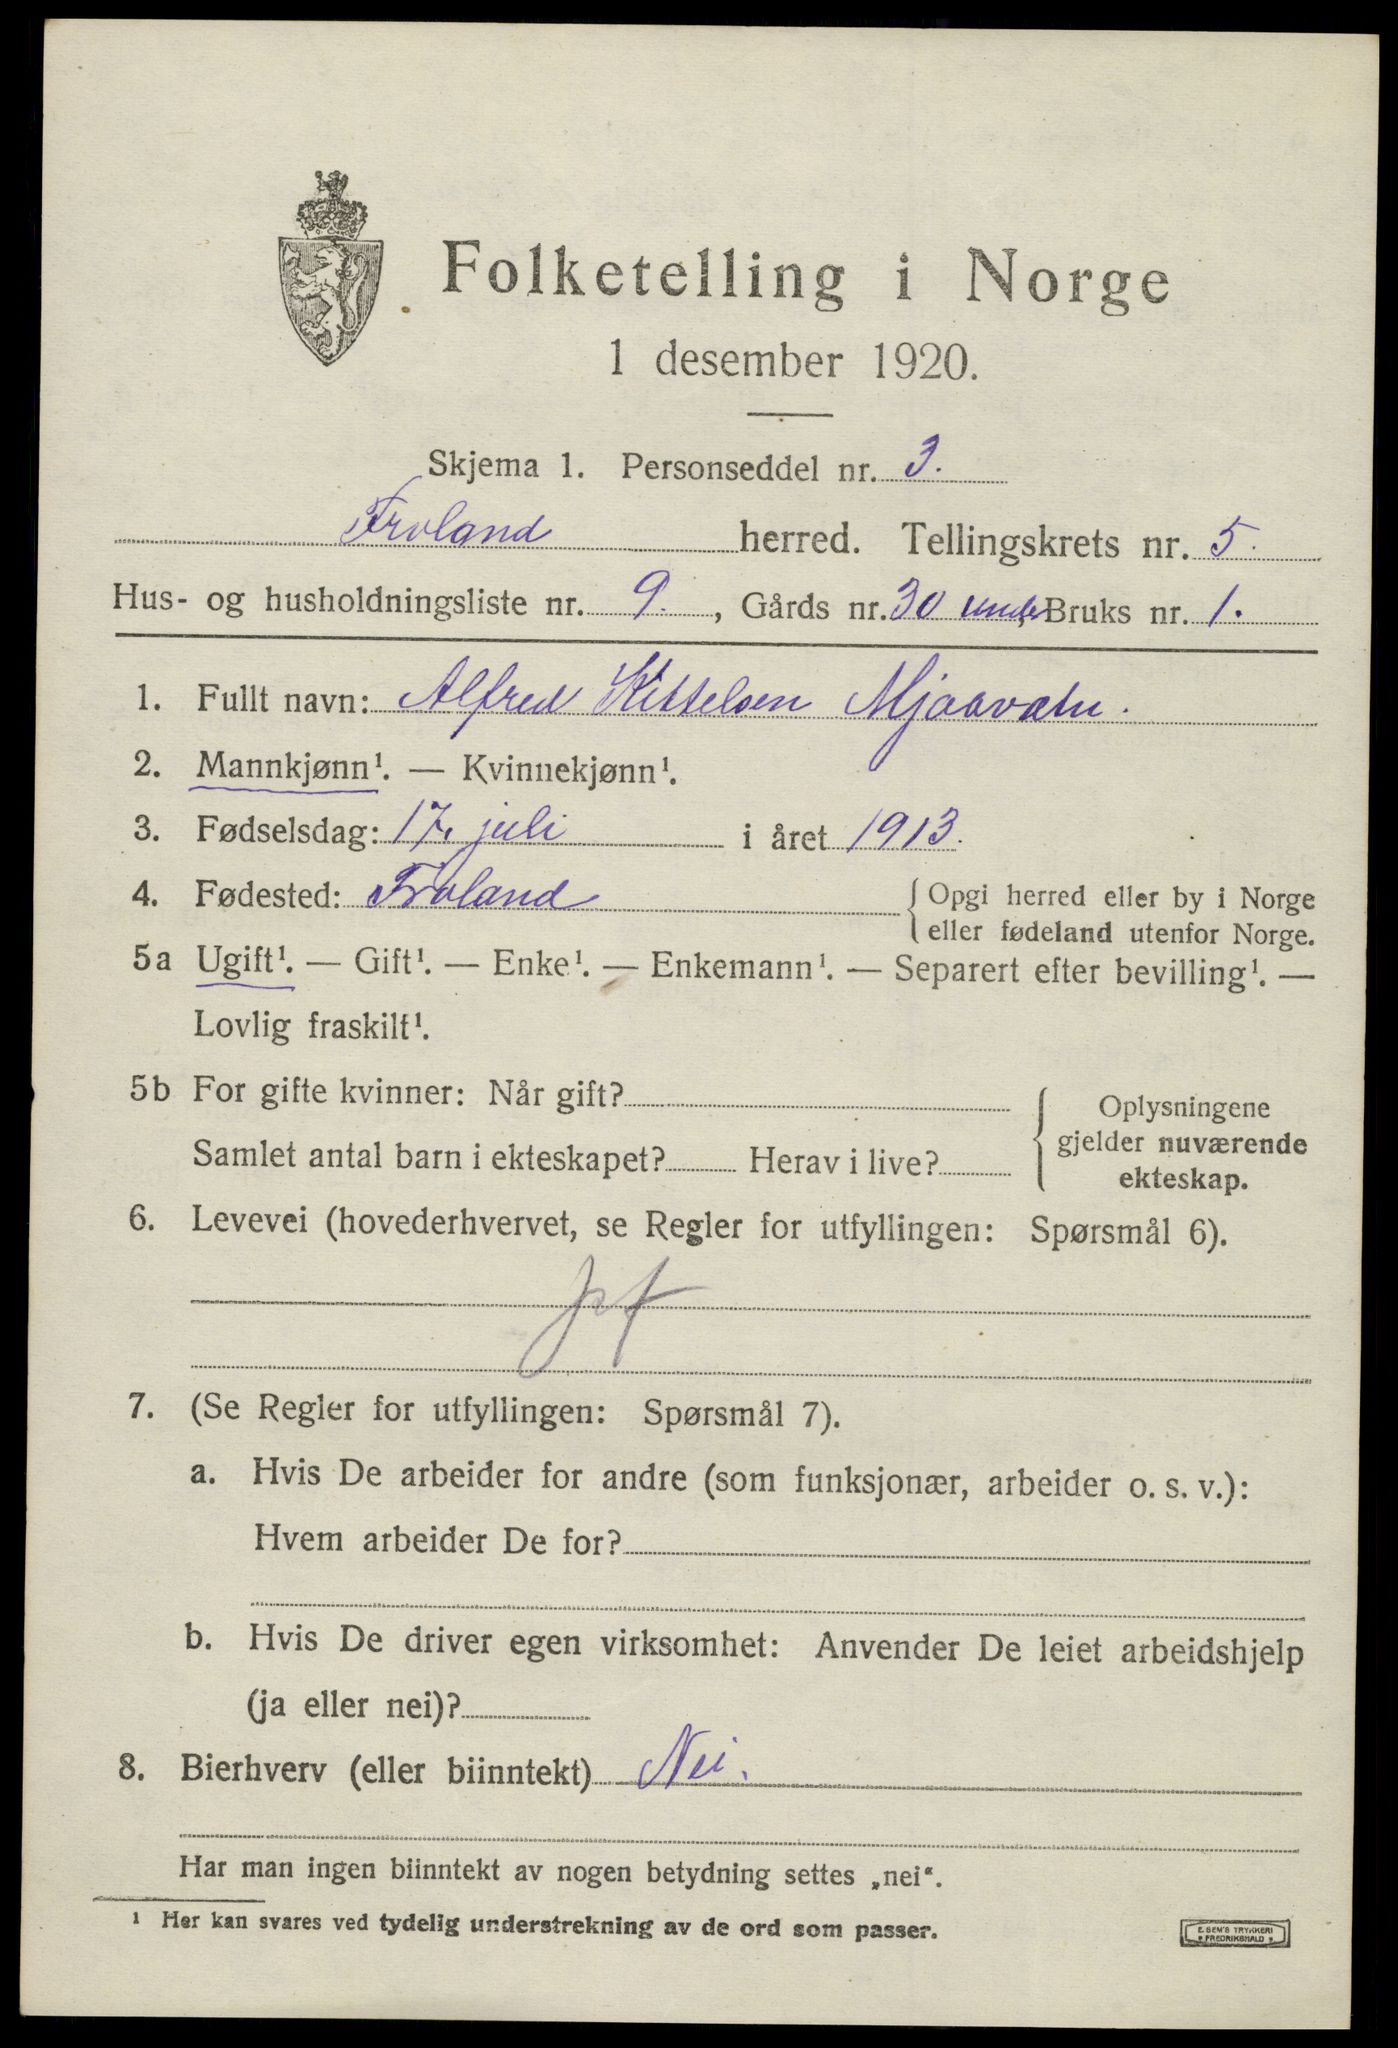 Folketelling i Norge
1 desember 1920.
Skjema 1. Personseddel nr. 3.
Froland herred. Tellingskrets nr. 5.
Hus- og husholdningsliste nr. 9., Gårds nr. 30 under, Bruks nr. 1.
1. Fullt navn: Alfred Kittelsen Mjaavatn.
2. Mannkjønn¹. — Kvinnekjønn¹.
3. Fødselsdag: 17. juli i året 1913.
4. Fødested: Froland { Opgi herred eller by i Norge
eller fødeland utenfor Norge.
5a Ugift¹. — Gift¹. — Enke¹. — Enkemann¹. — Separert efter bevilling¹. —
Lovlig fraskilt¹.
5b For gifte kvinner: Når gift?
Samlet antal barn i ekteskapet? Herav i live?
Oplysningene
gjelder nuværende
ekteskap.
6. Levevei (hovederhvervet, se Regler for utfyllingen: Spørsmål 6).
7. (Se Regler for utfyllingen: Spørsmål 7).
a. Hvis De arbeider for andre (som funksjonær, arbeider o. s. v.):
Hvem arbeider De for?
b. Hvis De driver egen virksomhet: Anvender De leiet arbeidshjelp
(ja eller nei)?
8. Bierhverv (eller biinntekt) Nei.
Har man ingen biinntekt av nogen betydning settes „nei“.
¹ Her kan svares ved tydelig understrekning av de ord som passer.
E. SEM'S TRYKKERI
FREDRIKSHALD